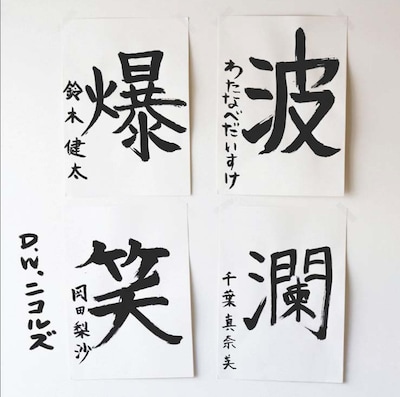 波
わたなべだいすけ
瀾
千葉真奈美
爆
鈴木健太
笑
岡田梨沙
D.W.ニコルズ